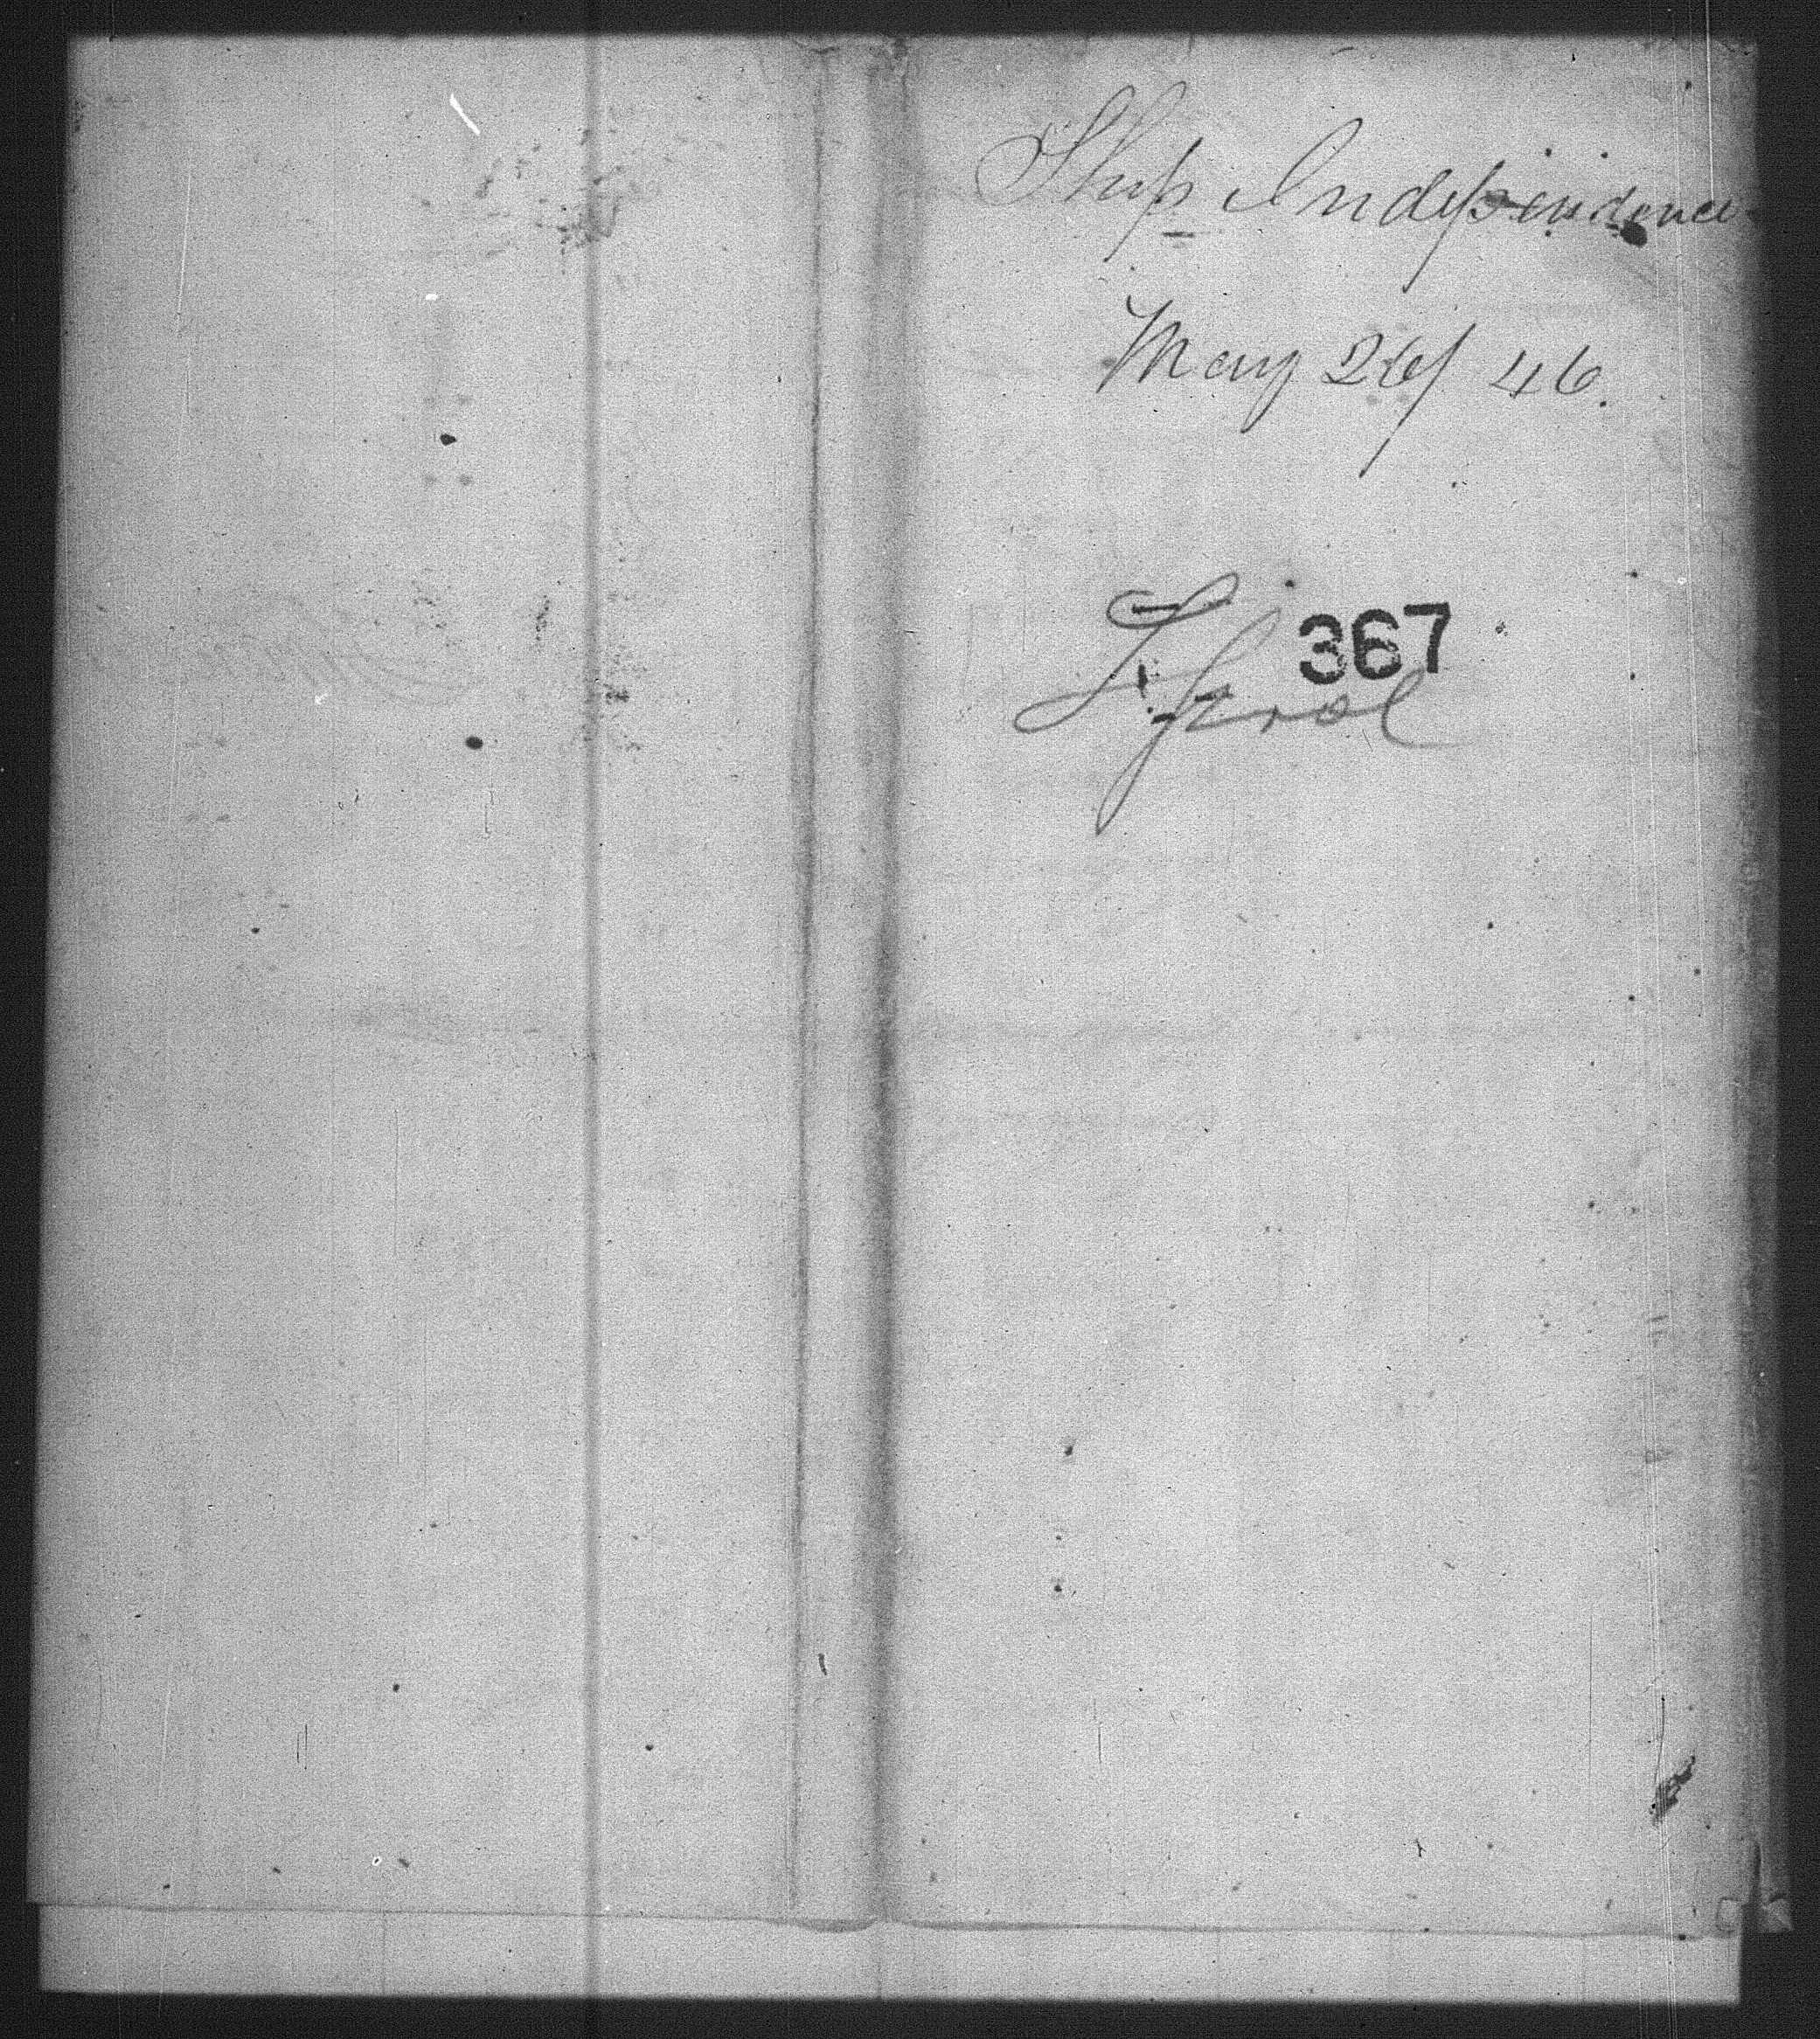 Ship Independence
May 26/ 46.
367